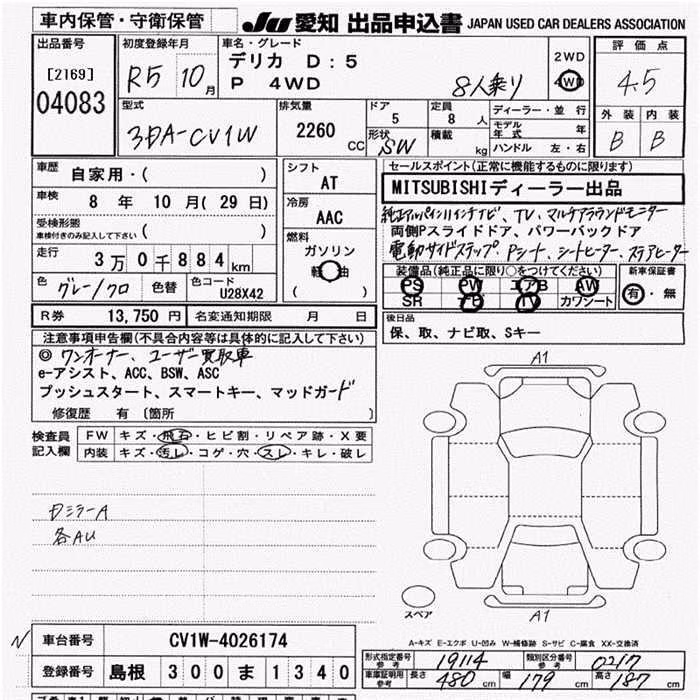 車内保管・守衛保管
JU 愛知 出品申込書 JAPAN USED CAR DEALERS ASSOCIATION
出品番号
[2169]
04083
初度登録年月
R5 10月
車名・グレード
デリカ D:5
P 4WD
8人乗り
2WD
4WD
評価点
4.5
外装 内装
B B
型式
3DA-CV1W
排気量
2260 CC
ドア
5
形状
SW
定員
8 人
積載
kg
ディーラー・並行
モデル年式 年
ハンドル 左・右
車歴
自家用・( )
車検
8 年 10 月 ( 29 日)
受検形態
車検付きのみ記入して下さい ( )
走行
3万0千884 km
色
グレー/クロ
色替
色コード
U28X42
シフト
AT
冷房
AAC
燃料
ガソリン
軽油
( )
セールスポイント(正常に機能するものに限ります)
MITSUBISHIディーラー出品
純正アルパイン11インチナビ、TV、マルチアラウンドモニター
両側Pスライドドア、パワーバックドア
電動サイドステップ、Pシート、シートヒーター、ステアヒーター
装備品(純正品に限り○をつけてください)
PS PW エアB AW
SR ナビ TV カワシート
新車保証書
有・無
R券 13,750 円
名変通知期限 月 日
後日品
保、取、ナビ取、Sキー
注意事項申告欄(不具合内容等は具体的に記入して下さい)
◎ ワンオーナー、ユーザー買取車
e-アシスト、ACC、BSW、ASC
プッシュスタート、スマートキー、マッドガード
修復歴 有 〔箇所 〕
検査員記入欄
FW キズ・飛石・ヒビ割・リペア跡・X要
内装 キズ・汚レ・コゲ・穴・スレ・キレ・破レ
ミラーA
各AU
A1
A1
スペア
A-キズ E-エクボ U-凹み W-補修跡 S-サビ C-腐食 XX-交換済
N
車台番号 CV1W-4026174
登録番号 島根 300 ま 1340
形式指定番号 参考 19114
類別区分番号 参考 0217
車庫証明用 参考 長さ 480 cm 幅 179 cm 高さ 187 cm